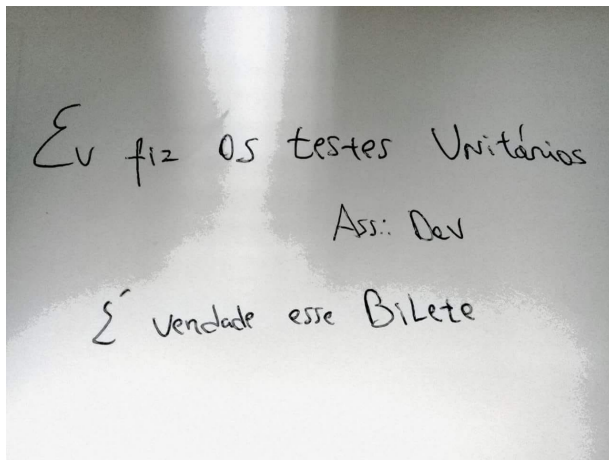 Eu fiz os testes Unitários
Ass:. Dev
É verdade esse BiLete